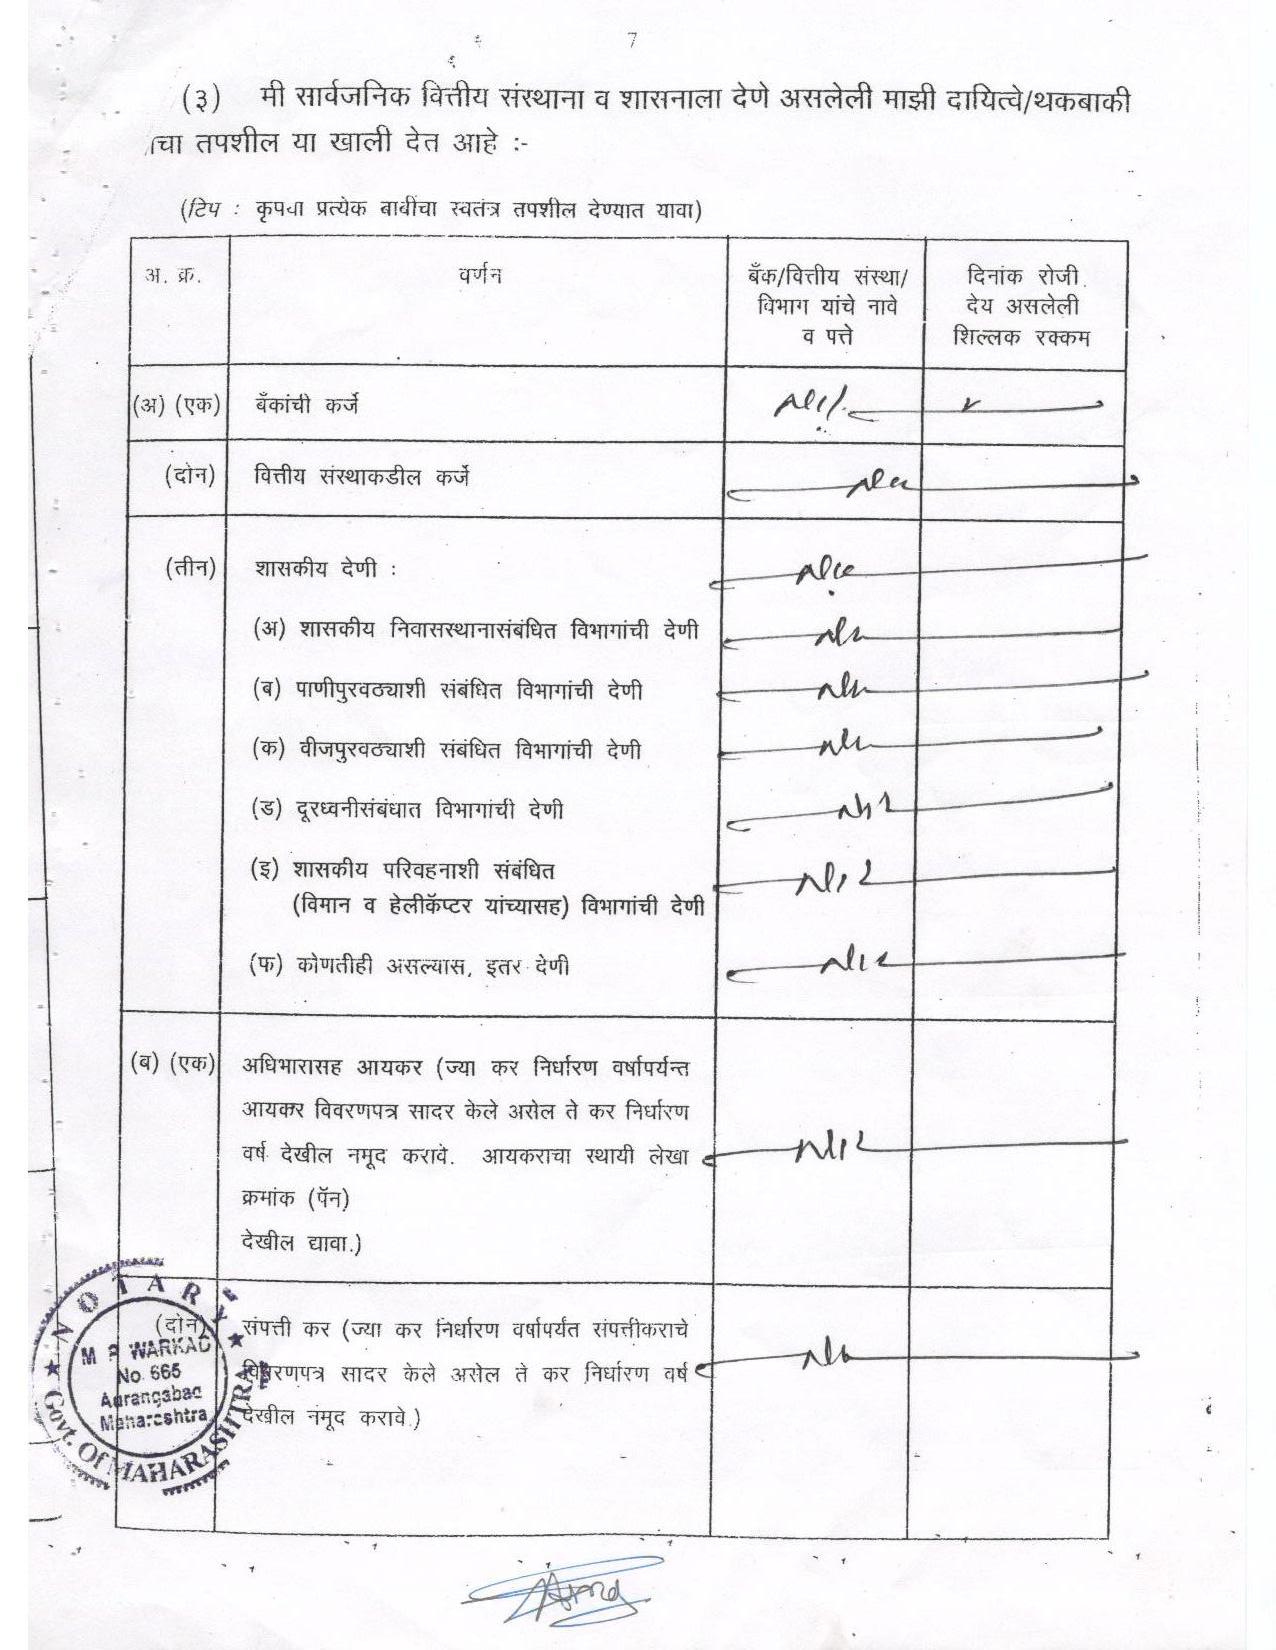 7
(३) मी सार्वजनिक वित्तीय संस्थाना व शासनाला देणे असलेली माझी दायित्वे/थकबाकी
ाचा तपशील या खाली देत आहे :-
(टिप : कृपया प्रत्येक बाबींचा स्वतंत्र तपशील देण्यात यावा)
अ. क्र. वर्णन बँक/वित्तीय संस्था/ दिनांक रोजी
विभाग यांचे नावे देय असलेली
व पत्ते शिल्लक रक्कम
(अ) (एक) बँकांची कर्जे Nil
(दोन) वित्तीय संस्थाकडील कर्जे Nil
(तीन) शासकीय देणी : Nil
(अ) शासकीय निवासस्थानासंबंधित विभागांची देणी Nil
(ब) पाणीपुरवठ्याशी संबंधित विभागांची देणी Nil
(क) वीजपुरवठ्याशी संबंधित विभागांची देणी Nil
(ड) दूरध्वनीसंबंधात विभागांची देणी Nil
(इ) शासकीय परिवहनाशी संबंधित Nil
(विमान व हेलीकॅप्टर यांच्यासह) विभागांची देणी
(फ) कोणतीही असल्यास, इतर देणी Nil
(ब) (एक) अधिभारासह आयकर (ज्या कर निर्धारण वर्षापर्यन्त
आयकर विवरणपत्र सादर केले असेल ते कर निर्धारण
वर्ष देखील नमूद करावे. आयकराचा स्थायी लेखा Nil
क्रमांक (पॅन)
देखील द्यावा.)
(दोन) संपत्ती कर (ज्या कर निर्धारण वर्षापर्यंत संपत्तीकराचे
विवरणपत्र सादर केले असेल ते कर निर्धारण वर्ष Nil
देखील नमूद करावे.)
NOTARY
M P WARKAD
No. 665
Aurangabad
Maharashtra
Govt. Of MAHARASHTRA